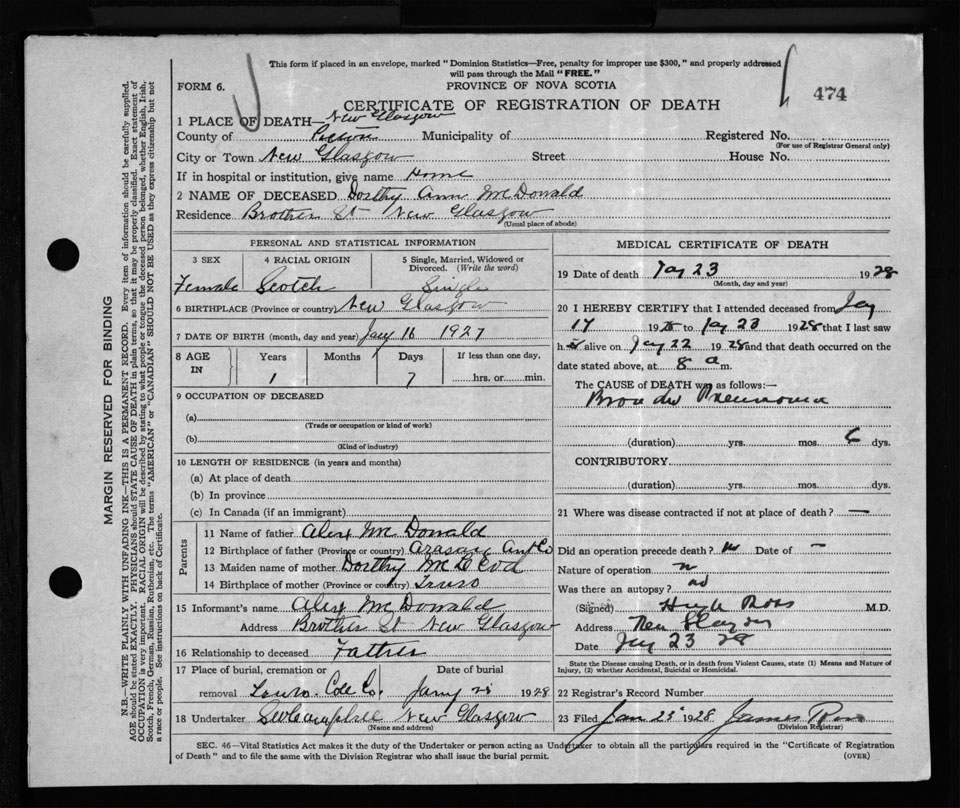 This form if placed in an envelope, marked "Dominion Statistics—Free, penalty for improper use $300," and properly addressed
will pass through the Mail "FREE."
FORM 6.
PROVINCE OF NOVA SCOTIA
474
CERTIFICATE OF REGISTRATION OF DEATH
1 PLACE OF DEATH— New Glasgow
County of Pictou Municipality of Registered No.
(For use of Registrar General only)
City or Town New Glasgow Street House No.
If in hospital or institution, give name Home
2 NAME OF DECEASED Dorthy Ann McDonald
Residence Brother St New Glasgow
(Usual place of abode)
PERSONAL AND STATISTICAL INFORMATION
3 SEX 4 RACIAL ORIGIN 5 Single, Married, Widowed or
Divorced. (Write the word)
Female Scotch Single
6 BIRTHPLACE (Province or country) New Glasgow
7 DATE OF BIRTH (month, day and year) Jany 16 1927
8 AGE IN Years Months Days If less than one day,
1 7 hrs. or min.
9 OCCUPATION OF DECEASED
(a)
(Trade or occupation or kind of work)
(b)
(Kind of industry)
10 LENGTH OF RESIDENCE (in years and months)
(a) At place of death
(b) In province
(c) In Canada (if an immigrant)
Parents
11 Name of father Alex McDonald
12 Birthplace of father (Province or country) Ant Co
13 Maiden name of mother Dorthy McLeod
14 Birthplace of mother (Province or country) Truro
15 Informant's name Alex McDonald
Address Brother St New Glasgow
16 Relationship to deceased Father
17 Place of burial, cremation or Date of burial
removal Truro. Col. Co. Jany 1928
18 Undertaker New Glasgow
(Name and address)
MEDICAL CERTIFICATE OF DEATH
19 Date of death Jay 23 1928
(Month, day and year)
20 I HEREBY CERTIFY that I attended deceased from Jay
17 1928 to Jay 23 1928 that I last saw
h er alive on Jay 22 1928 and that death occurred on the
date stated above, at 8 a m.
The CAUSE of DEATH was as follows:—
Broncho Pneumonia
(duration) yrs. mos. 6 dys.
CONTRIBUTORY
(duration) yrs. mos. dys.
21 Where was disease contracted if not at place of death? —
Did an operation precede death? no Date of —
Nature of operation
Was there an autopsy? no
(Signed) Hugh Ross M.D.
Address New Glasgow
Date Jay 23 28
State the Disease causing Death, or in death from Violent Causes, state (1) Means and Nature of
Injury, (2) whether Accidental, Suicidal or Homicidal.
22 Registrar's Record Number
23 Filed Jan 23 1928 James Ross
(Division Registrar)
SEC. 46—Vital Statistics Act makes it the duty of the Undertaker or person acting as Undertaker to obtain all the particulars required in the "Certificate of Registration
of Death" and to file the same with the Division Registrar who shall issue the burial permit. (OVER)
MARGIN RESERVED FOR BINDING
N.B.—WRITE PLAINLY WITH UNFADING INK—THIS IS A PERMANENT RECORD. Every item of information should be carefully supplied.
AGE should be stated EXACTLY. PHYSICIANS should STATE CAUSE OF DEATH in plain terms, so that it may be properly classified. Exact statement of
OCCUPATION is very important. RACIAL ORIGIN will be described by stating to what people or tongue the deceased person belonged, whether English, Irish,
Scotch, French, German, Russian, Ruthenian, etc. The terms "AMERICAN" or "CANADIAN" SHOULD NOT BE USED as they express citizenship but not
a race or people. See instructions on back of Certificate.